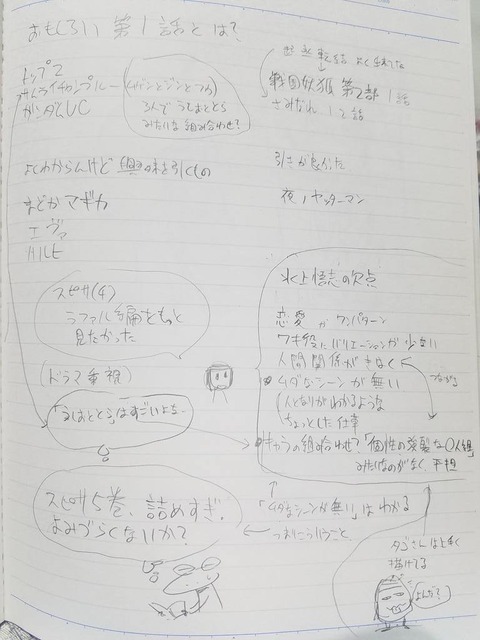 おもしろい第1話とは?
トップ2
サムライチャンプルー
ガンダムUC
(ムゲンとジンとフウ)
みたいな組み合わせ?
よく出来てた
戦国妖狐 第2部 1話
さみだれ 1~2話
よくわからんけど興味を引くもの
引きが良かった
まどかマギカ
夜ノヤッターマン
エヴァ
ハルヒ
水上悟志の欠点
スピサ(4)
ラファル編をもっと
見たかった
恋愛がワンパターン
ワキ役にバリエーションが少ない
人間関係がせまく
ムダなシーンが無い
つながる
(人となりがわかるような
ちょっとした仕草
(ドラマ重視)
「うしおととらはすごいよな…
キャラの組み合わせ?「個性の強烈な〇人組」
みたいなのがなく、平坦
スピサ5巻、詰めすぎ。
よみづらくないか?
「ムダなシーンが無い」はわかる
つまりこういうこと
タゴさんは上手く
描けてる
よんだ?